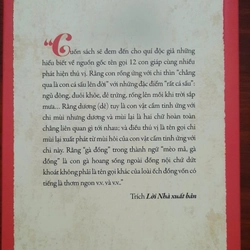 “Cuốn sách sẽ đem đến cho quí độc giả những
hiểu biết về nguồn gốc tên gọi 12 con giáp cùng nhiều
phát hiện thú vị. Rằng con rồng ứng với chi thìn "chẳng
qua là con cá sấu lên đời" với những đặc điểm "rất cá sấu":
ngủ đông, đuôi khỏe, đẻ trứng, rống lên mỗi khi trời sắp
mưa... Rằng dương (dê) tuy là con vật cầm tinh ứng với
chi mùi nhưng dương và mùi lại là hai chữ hoàn toàn
chẳng liên quan gì tới nhau; và điều thú vị là tên gọi chi
mùi lại xuất phát từ mùi hôi của con vật cầm tinh ứng với
chi này. Rằng "gà đồng" trong thành ngữ "mèo mả, gà
đồng" là con gà hoang sống ngoài đồng nội chứ dứt
khoát không phải là tên gọi khác của loài ếch đồng vốn có
tiếng là thơm ngon v.v. và v.v."
Trích Lời Nhà xuất bản